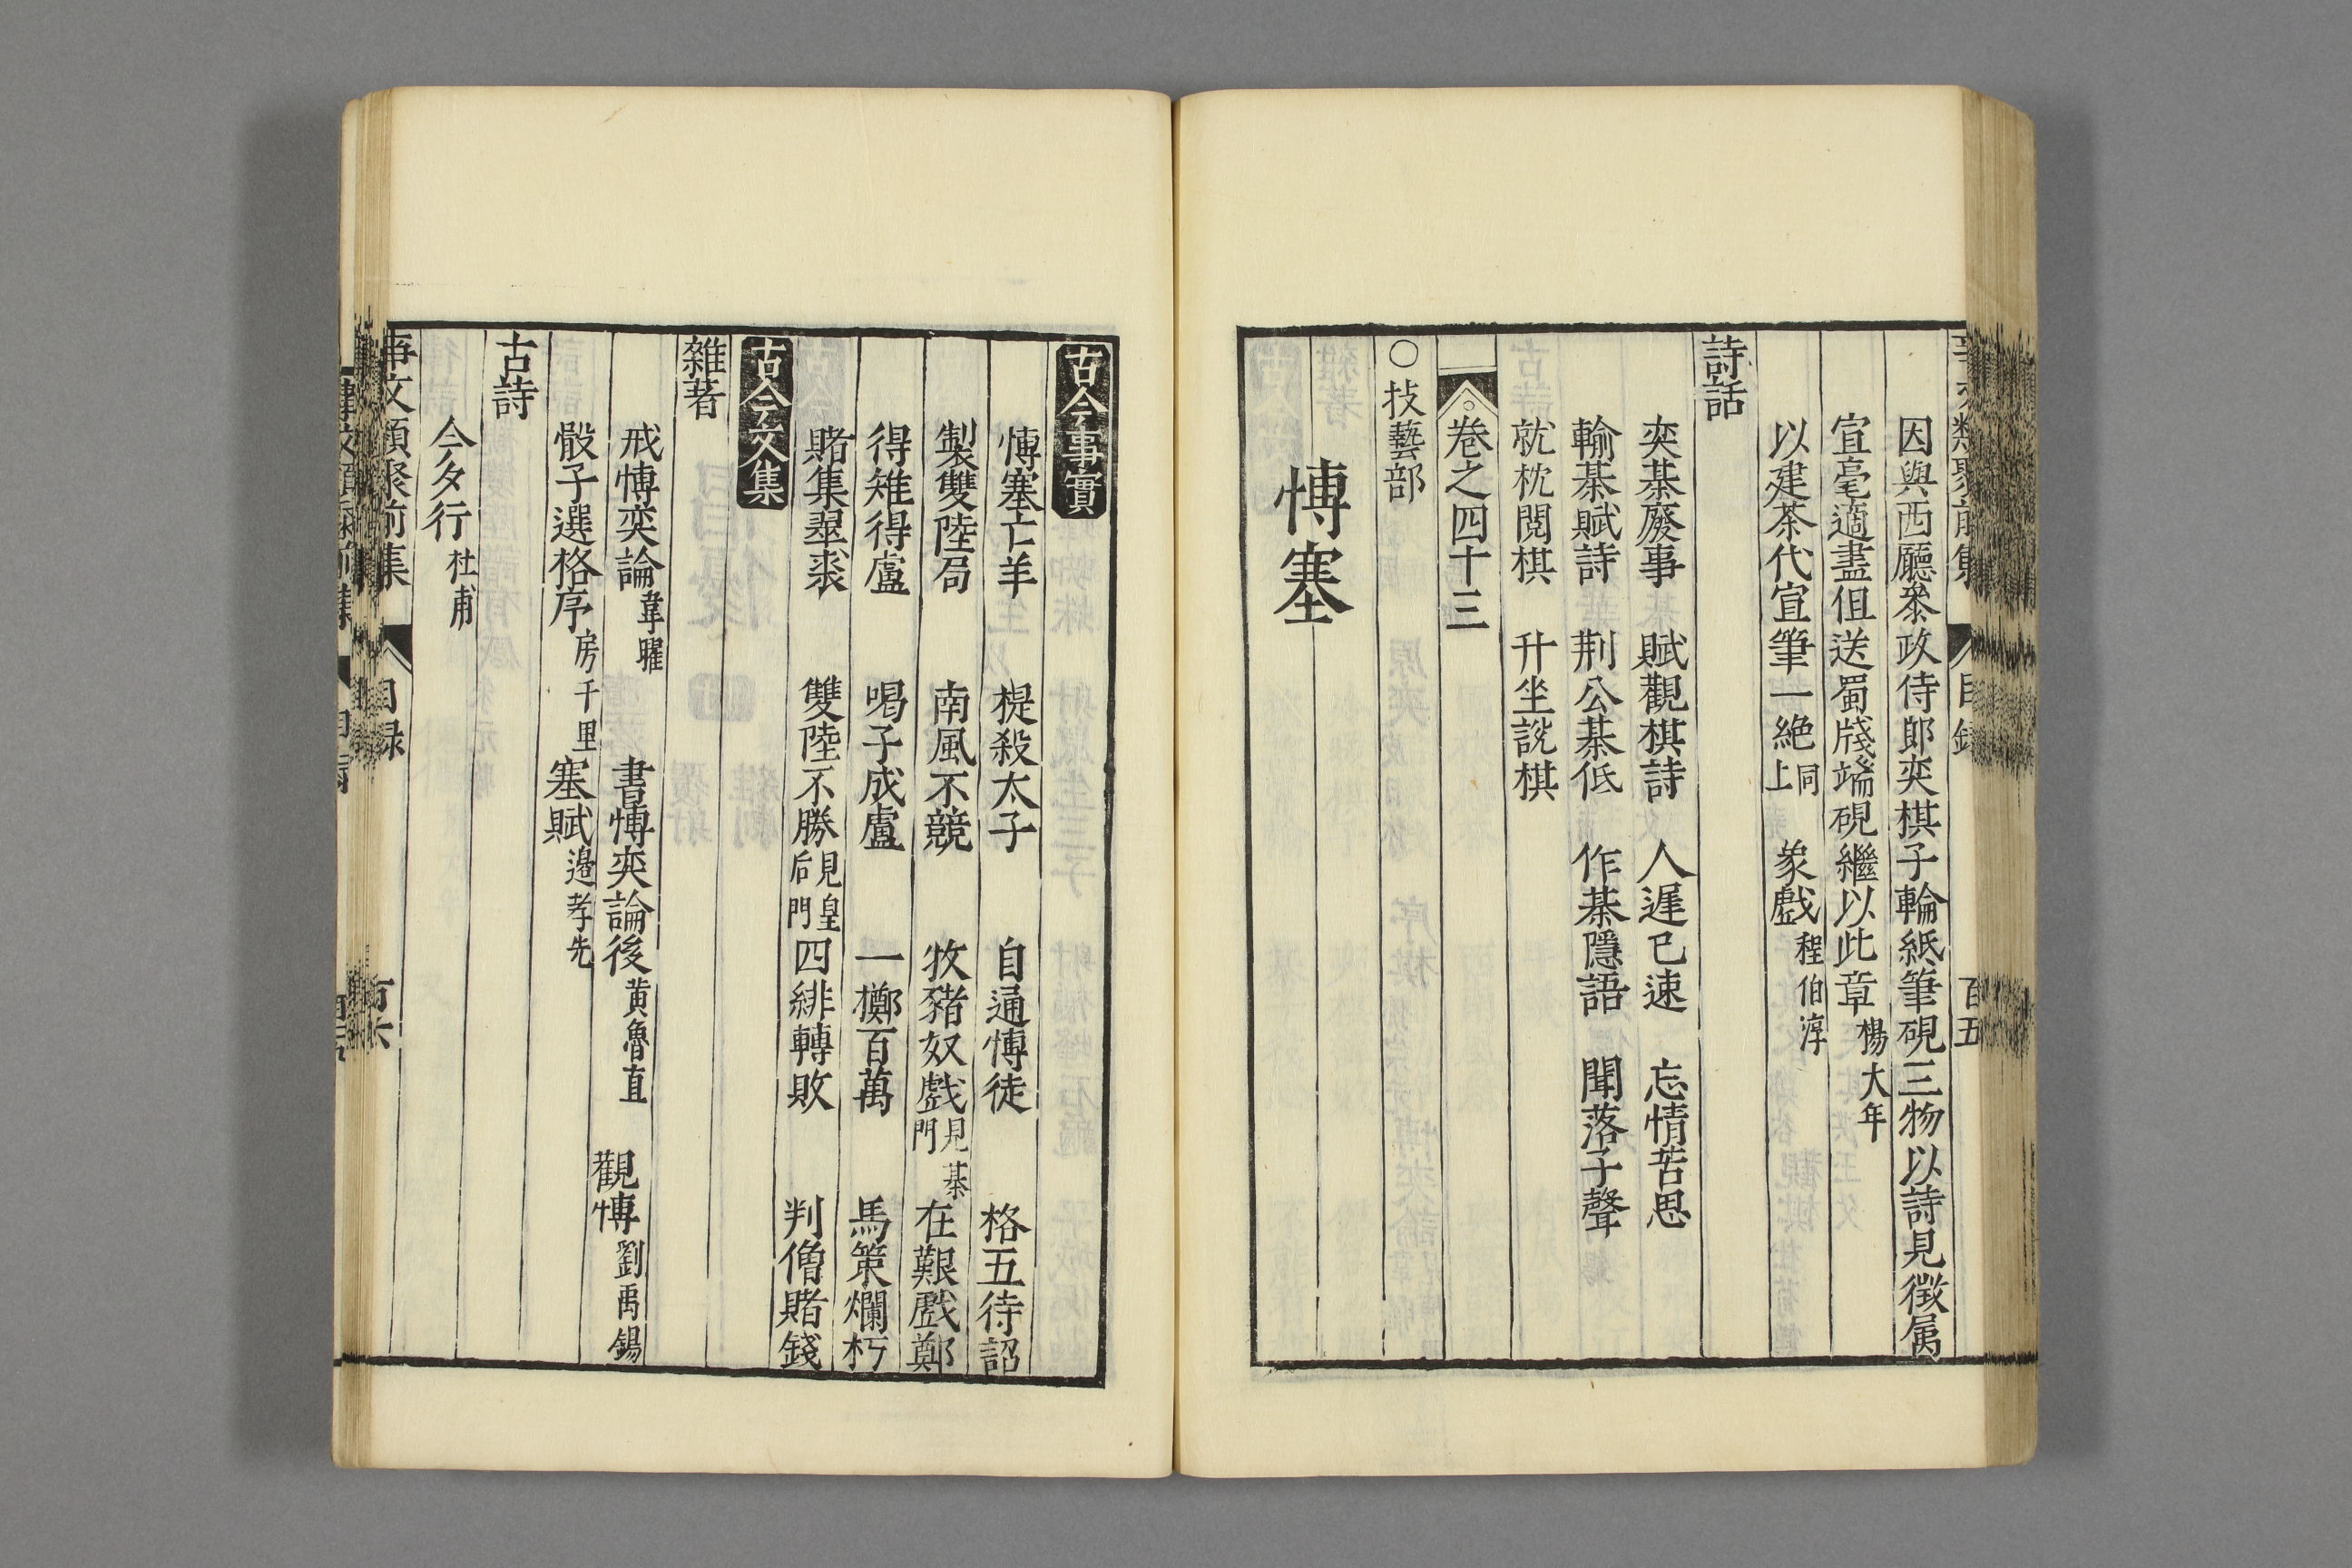 因與西廳叅政侍郎奕棋子輪紙筆硯三物以詩見徵属
宣毫適盡但送蜀牋端硯繼以此章楊大年
以建茶代宣筆一絶同上　象戲程伯淳
詩話
奕棊廢事　賦觀棋詩　人遲已速　忘情苦思
輸棊賦詩　荆公棊低　作棊隱語　聞落子聲
就枕閱棋　升坐説棋
卷之四十三
○技藝部
愽塞
古今事實
愽塞亡羊　提殺太子　自通愽徒　格五待詔
製雙陸局　南風不競　牧豬奴戲見棊門　在艱戲鄭
得雉得盧　喝子成盧　一擲百萬　馬策爛朽
賭集翠裘　雙陸不勝見皇后門　四緋轉敗　判僧賭錢
古今文集
雜著
戒愽奕論韋曜　書愽奕論後黄魯直　觀愽劉禹錫
骰子選格序房千里　塞賦邊孝先
古詩
今夕行杜甫
事文類聚前集　目録